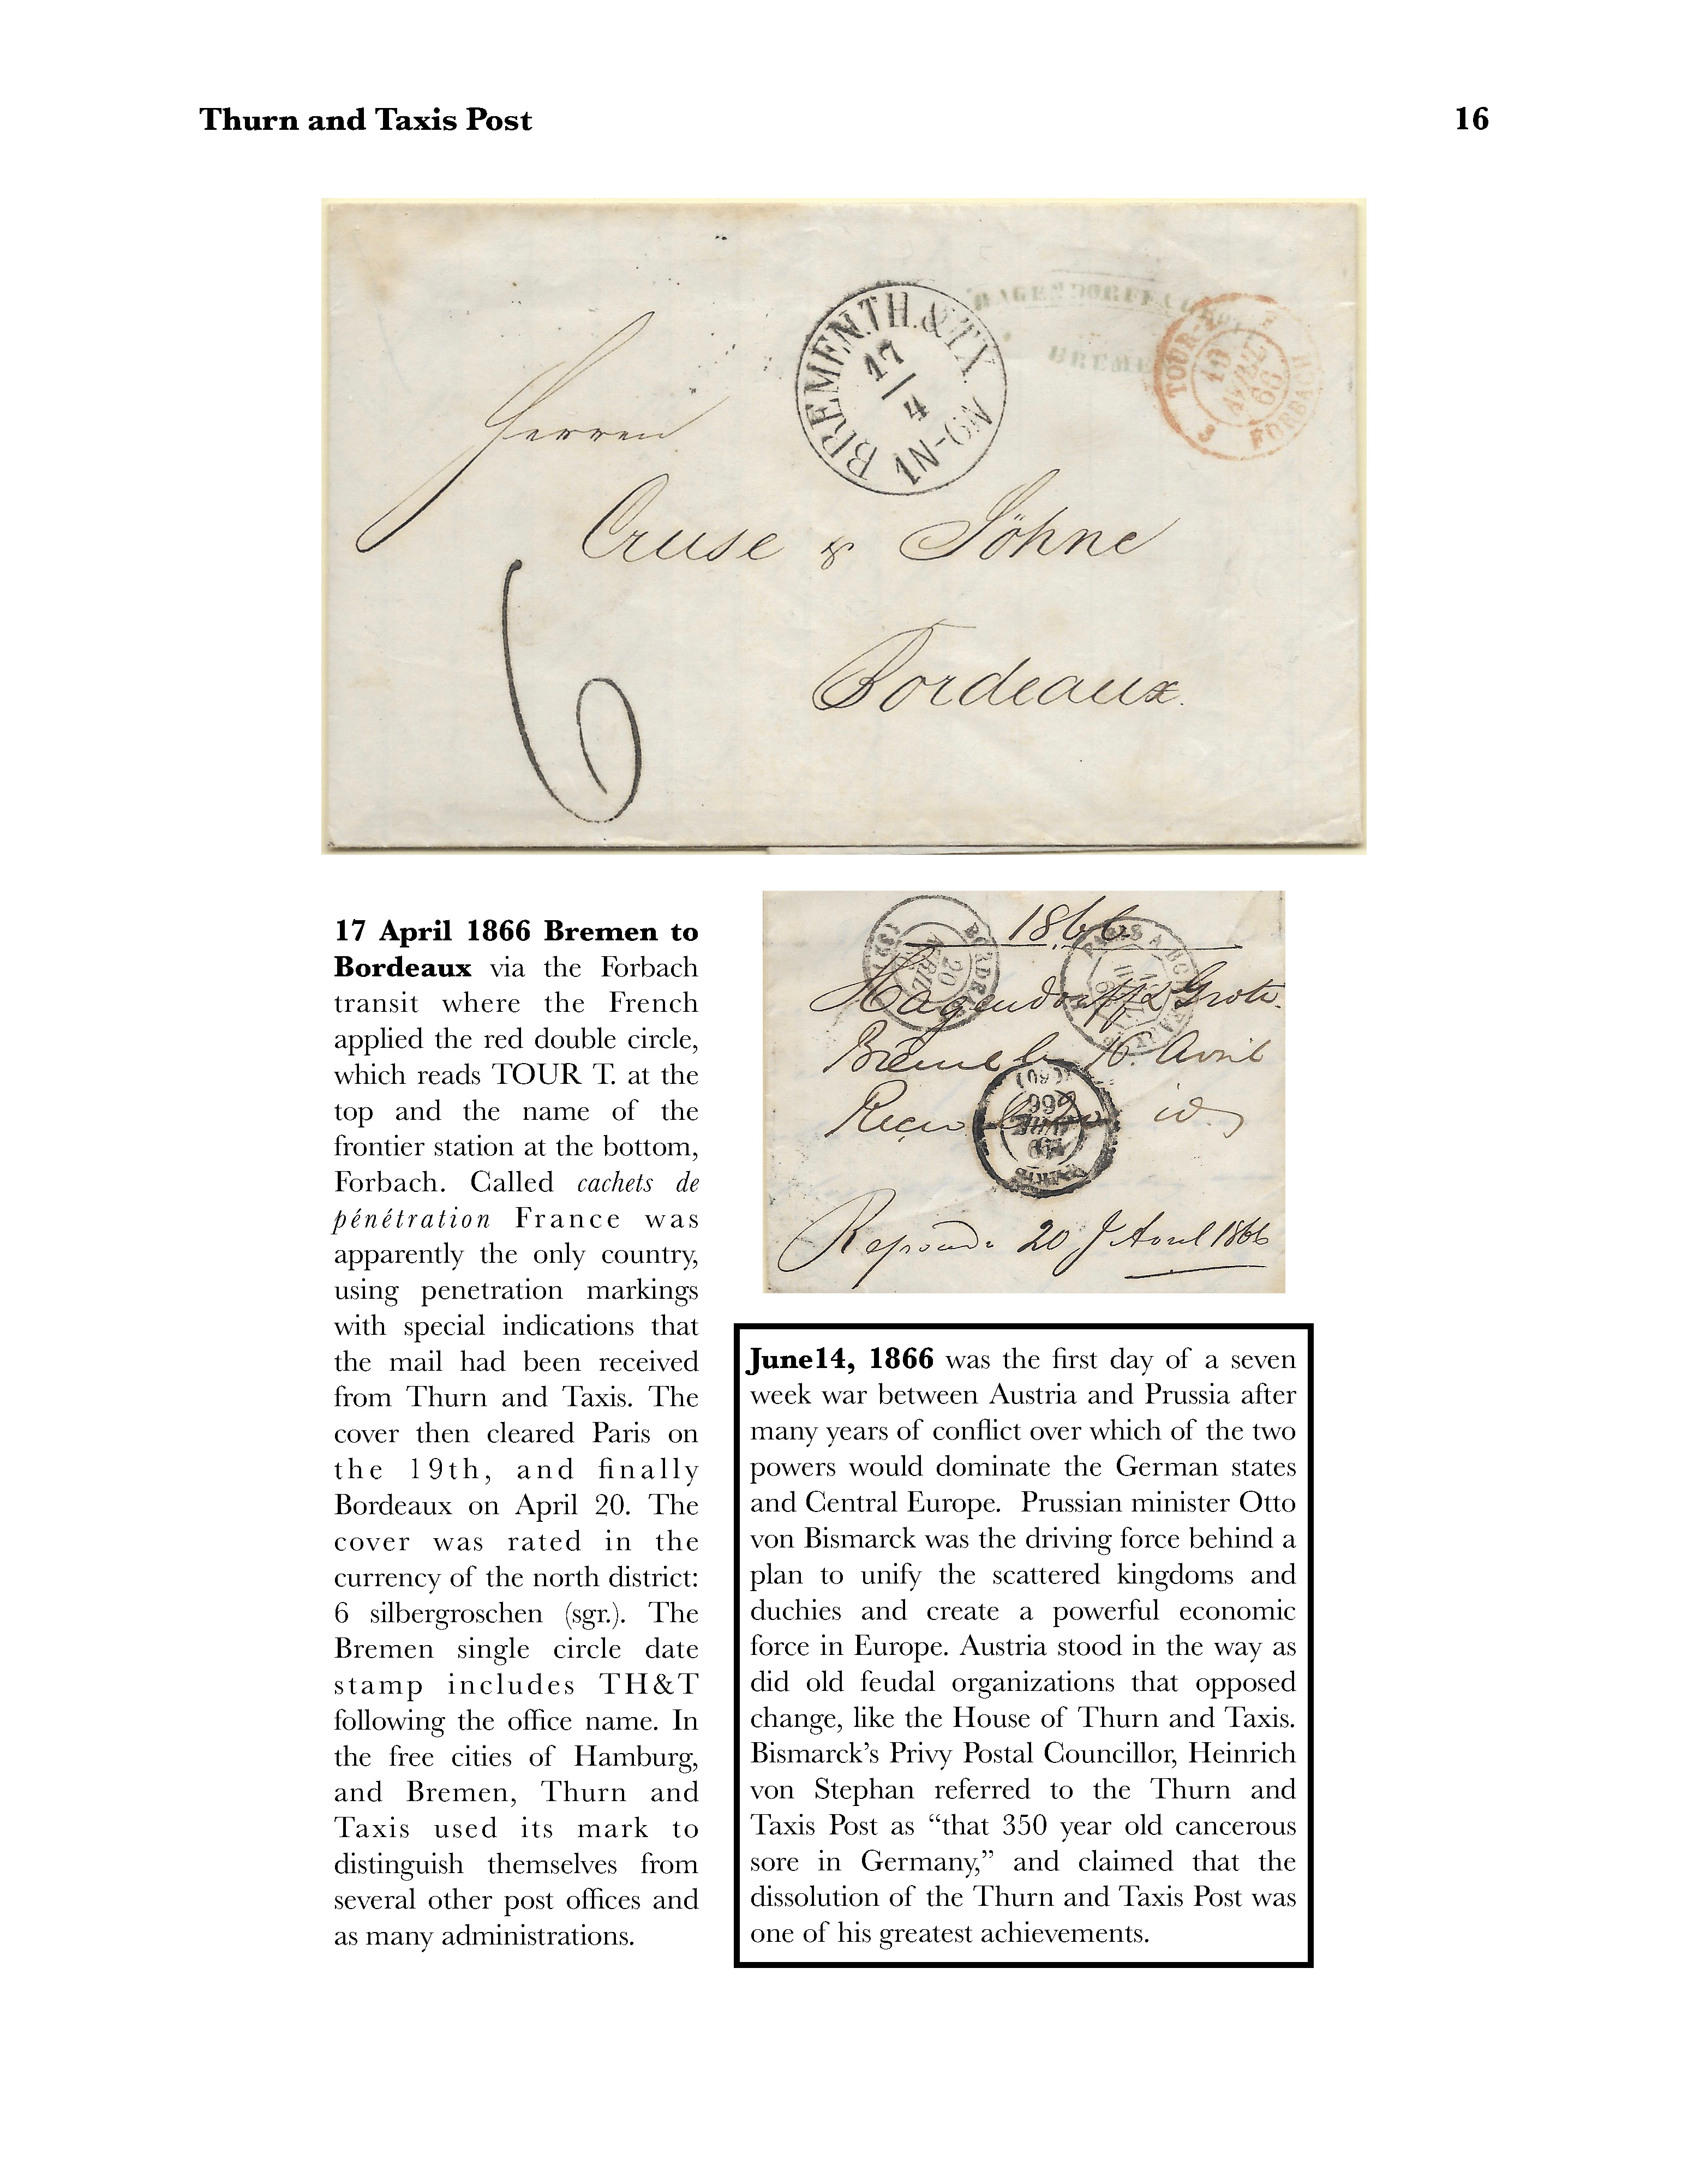 Thurn and Taxis Post
16
HAGENDORFF
BREMEN
BREMEN.TH.&TX.
17
4
1N-6N
TOUR-T.
3
FORBACH
Herren
Cruse & Söhne
Bordeaux.
6
17 April 1866 Bremen to
Bordeaux via the Forbach
transit where the French
applied the red double circle,
which reads TOUR T. at the
top and the name of the
frontier station at the bottom,
Forbach. Called cachets de
pénétration France was
apparently the only country,
using penetration markings
with special indications that
the mail had been received
from Thurn and Taxis. The
cover then cleared Paris on
the 19th, and finally
Bordeaux on April 20. The
cover was rated in the
currency of the north district:
6 silbergroschen (sgr.). The
Bremen single circle date
stamp includes TH&T
following the office name. In
the free cities of Hamburg,
and Bremen, Thurn and
Taxis used its mark to
distinguish themselves from
several other post offices and
as many administrations.
1866
Hagendorff & Grote
16 Avril
BORDEAUX
20
AVRIL
PARIS A BORDEAUX
PARIS
(60)
66
20 Avril 1866
June14, 1866 was the first day of a seven
week war between Austria and Prussia after
many years of conflict over which of the two
powers would dominate the German states
and Central Europe. Prussian minister Otto
von Bismarck was the driving force behind a
plan to unify the scattered kingdoms and
duchies and create a powerful economic
force in Europe. Austria stood in the way as
did old feudal organizations that opposed
change, like the House of Thurn and Taxis.
Bismarck's Privy Postal Councillor, Heinrich
von Stephan referred to the Thurn and
Taxis Post as “that 350 year old cancerous
sore in Germany,” and claimed that the
dissolution of the Thurn and Taxis Post was
one of his greatest achievements.